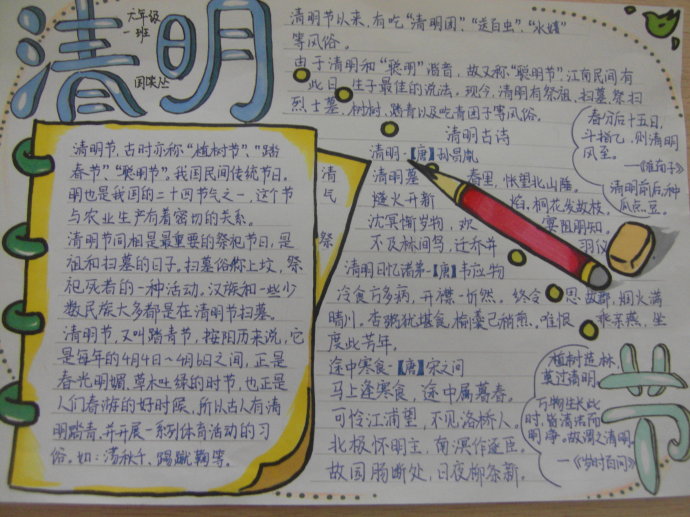 清明
六年级
一班
清明节以来,有吃“清明团”、“送白虫”、“水嬉”
等风俗。
由于清明和“聪明”谐音,故又称“聪明节”,江南民间有
此日生子最佳的说法。现今,清明有祭祖、扫墓、祭扫
烈士墓、树树、踏青以及吃青团子等风俗。
清明古诗
清明·【唐】孙昌胤
清明暮春里,怅望北山陲。
燧火开新焰,桐花发故枝。
沈冥惭岁物,欢宴阻朋知。
不及林间鸟,迁乔并羽仪
清明日忆诸弟·【唐】韦应物
冷食方多病,开襟一忻然。终令思故郡,烟火满
晴川。杏粥犹堪食,榆羹已稍煎。唯恨乖亲燕,坐
度此芳年。
途中寒食·【唐】宋之问
马上逢寒食,途中属暮春。
可怜江浦望,不见洛桥人。
北极怀明主,南溟作逐臣。
故园肠断处,日夜柳条新。
清明节,古时亦称“植树节”、“踏
春节”、“聪明节”。我国民间传统节日。
明也是我国的二十四节气之一,这个节
与农业生产有着密切的关系。
清明节同相是最重要的祭祀节日,是
祖和扫墓的日子。扫墓俗称上坟,祭
祀死者的一种活动。汉族和一些少
数民族大多都是在清明节扫墓。
清明节,又叫踏青节,按阳历来说,它
是每年的4月4日~4月6日之间,正是
春光明媚,草木吐绿的时节,也正是
人们春游的好时候,所以古人有清
明踏青,并开展一系列体育活动的习
俗。如:荡秋千、踢蹴鞠等。
清
民
祭
春分后十五日,
斗指乙,则清明
风至。
—《淮南子》
清明前后,种
瓜点豆。
植树造林,
莫过清明。
万物生长此
时,皆清洁而
明净。故谓之清明。
—《岁时百问》
节